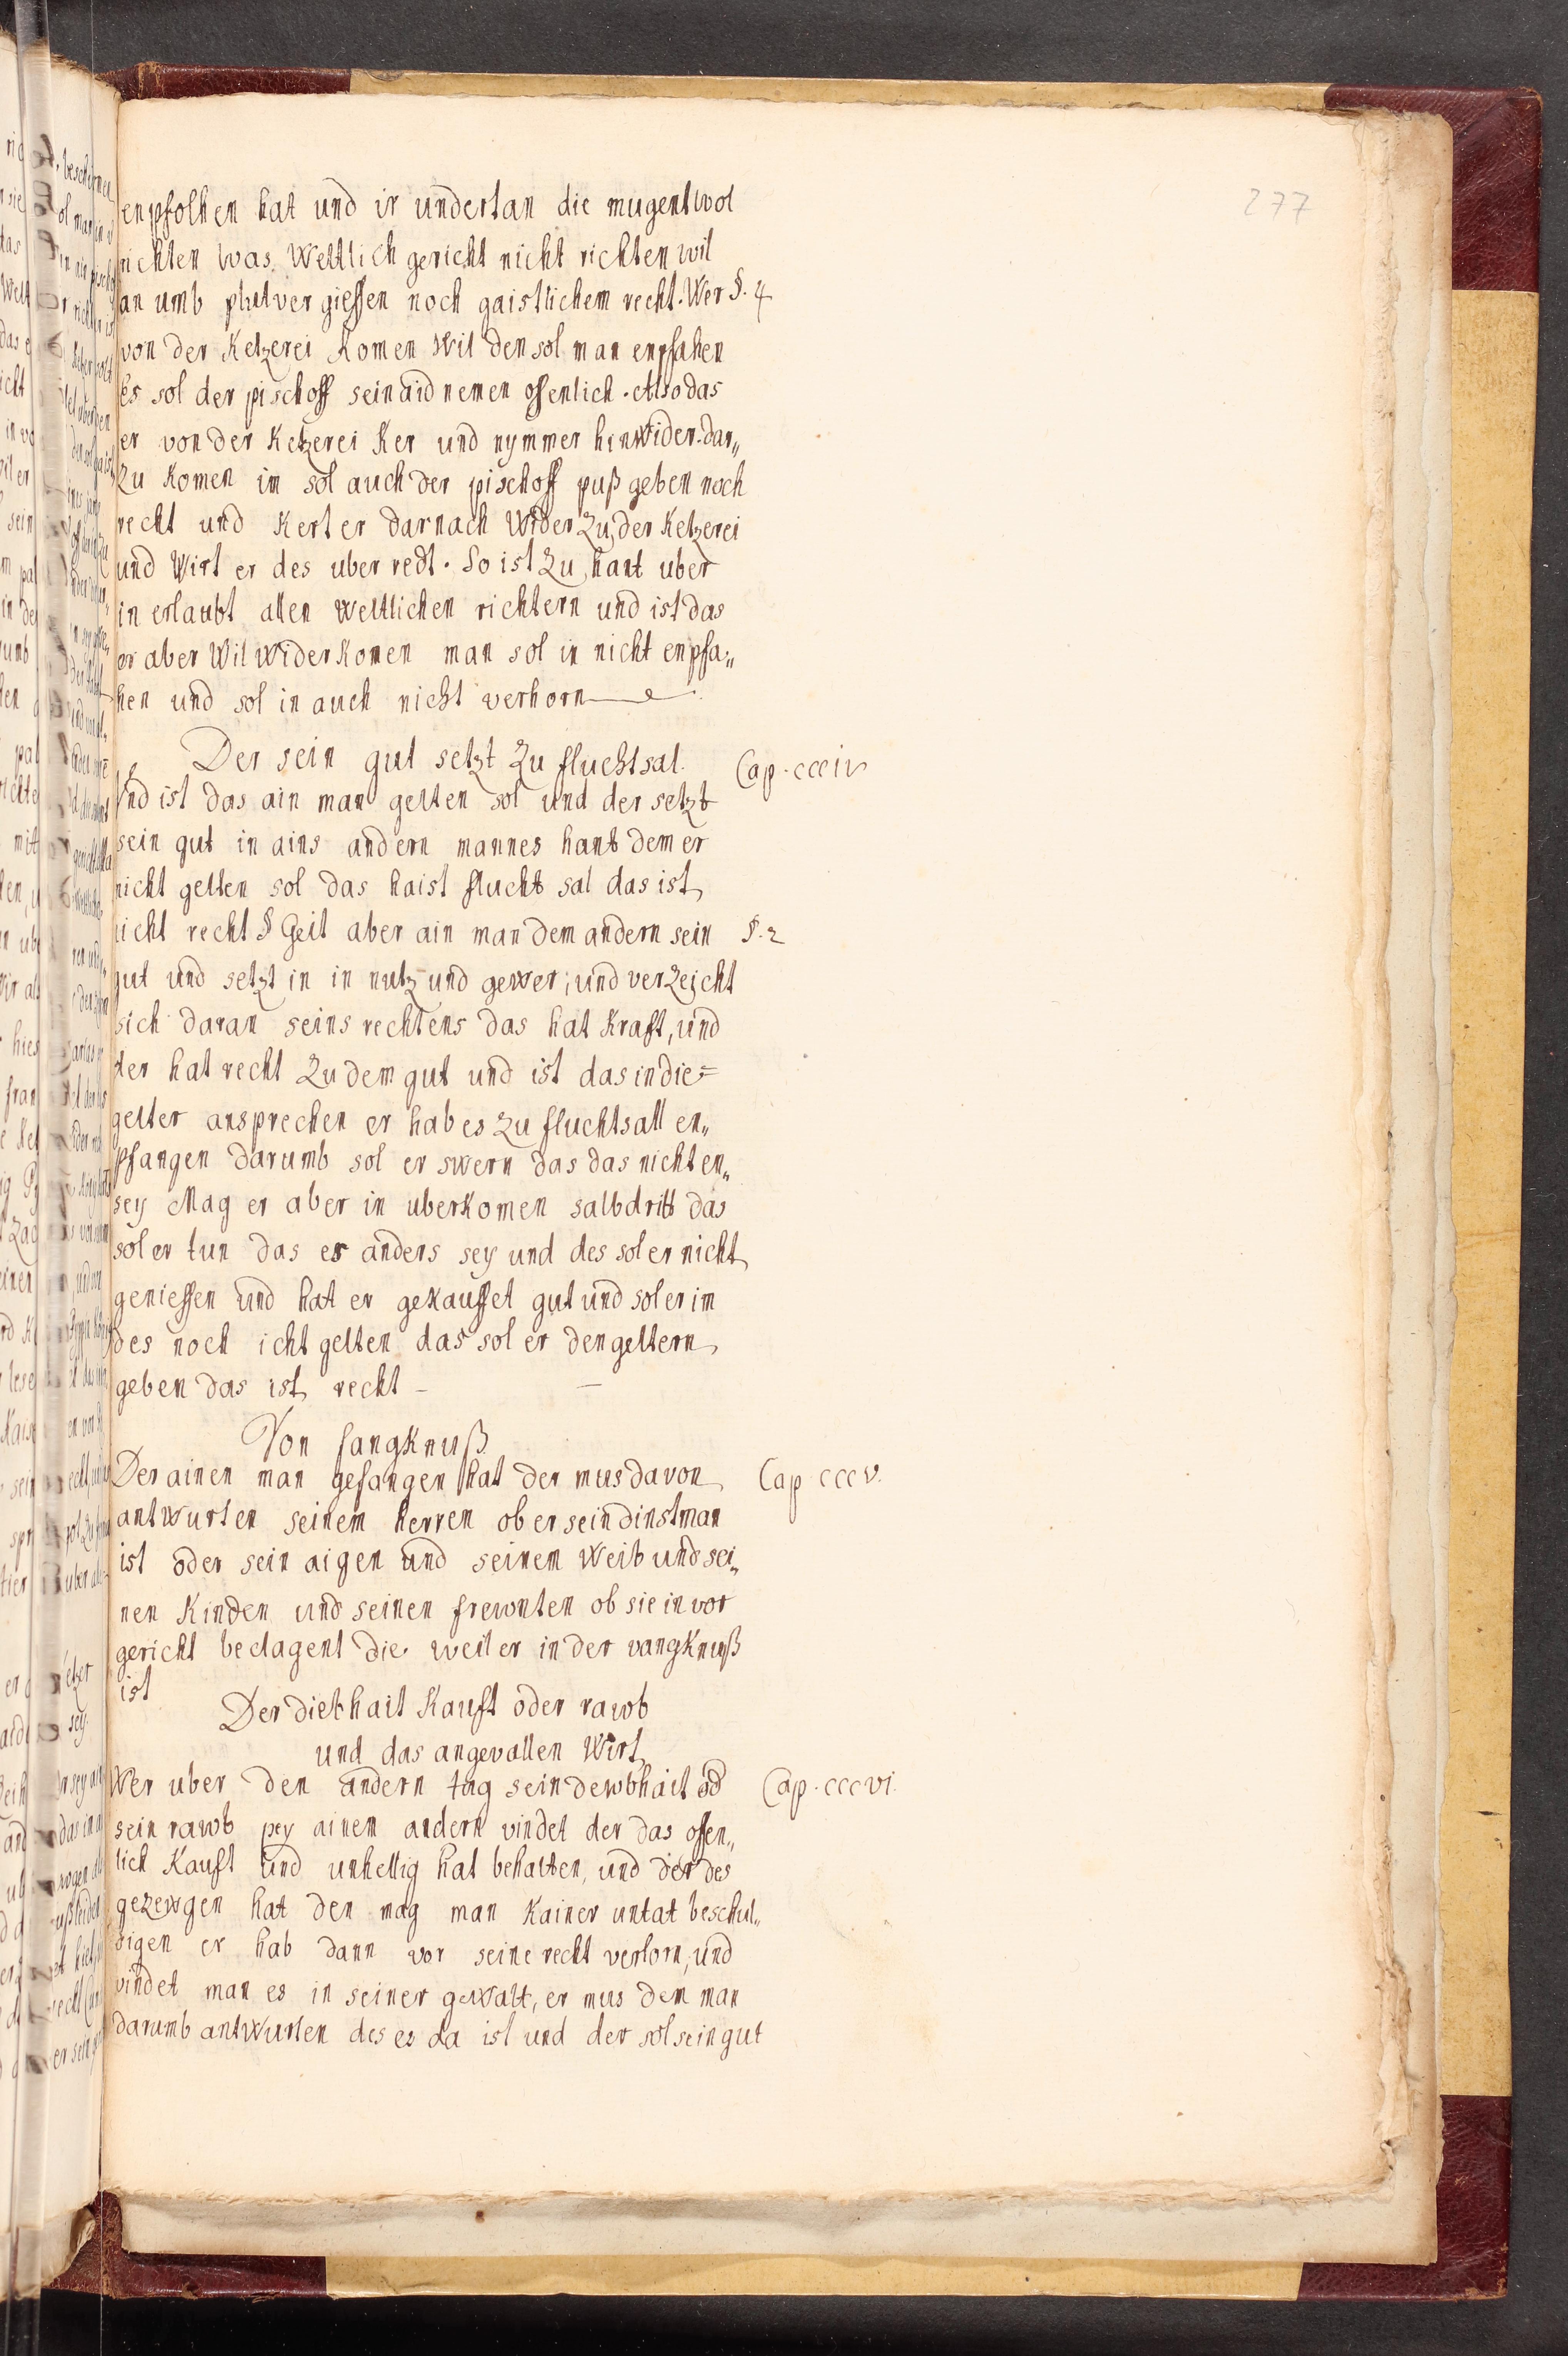 277
enpfolhen hat und ir undertan die mugent wol
richten was Weltlich gericht nicht richten wil
an umb plutvergiessen noch gaistlichem recht. Wer §. 4
von der Ketzerei Komen Wil den sol man enpfahen
es sol der pischoff sein aid nemen offenlich. Also das
er von der Ketzerei Ker und nymmer hinwider dar„
zu Komen im sol auch der pischoff puß geben noch
recht und Kert er darnach Wider zu der Ketzerei
und Wirt er des uber redt. So ist zu hant uber
in erlaubt allen Weltlichen richtern und ist das
er aber Wil Wider Komen man sol in nicht enpfa„
hen und sol in auch nicht verhorn
Der sein gut setzt zu fluchtsal. Cap. ccciv
Und ist das ain man gelten sol und der setzt
sein gut in ains andern mannes hant dem er
nicht gelten sol das haist flucht sal das ist
nicht recht § Geit aber ain man dem andern sein §. 2
gut und setzt in in nutz und gewer, und verzeicht
sich daran seins rechtens das hat Kraft, und
der hat recht zu dem gut und ist das in die=
gelter ansprechen er hab es zu fluchtsall en„
pfangen darumb sol er swern das das nicht en„
sey Mag er aber in uberKomen salbdritt das
sol er tun das es anders sey und des sol er nicht
geniessen und hat er geKauffet gut und sol er im
des noch icht gelten das sol er den geltern
geben das ist recht –
Von fangKnuß
Der ainen man gefangen hat der mus davon Cap. cccv.
antWurten seinem herren ob er sein dinstman
ist oder sein aigen und seinem Weib und sei„
nen Kinden und seinen frewnten ob sie in vor
gericht beclagent die weil er in der vangKnuß
ist
Der diebhait Kauft oder rawb
und das angevallen Wirt
Wer uber den andern tag sein dewbhait od Cap. cccvi.
sein rawb pey ainem andern vindet der das offen„
lich Kauft und unhellig hat behalten, und der des
gezewgen hat den mag man Kainer untat beschul„
digen er hab dann vor seine recht verlorn, und
vindet man es in seiner gewalt, er mus dem man
darumb antWurten des es da ist und der sol sein gut